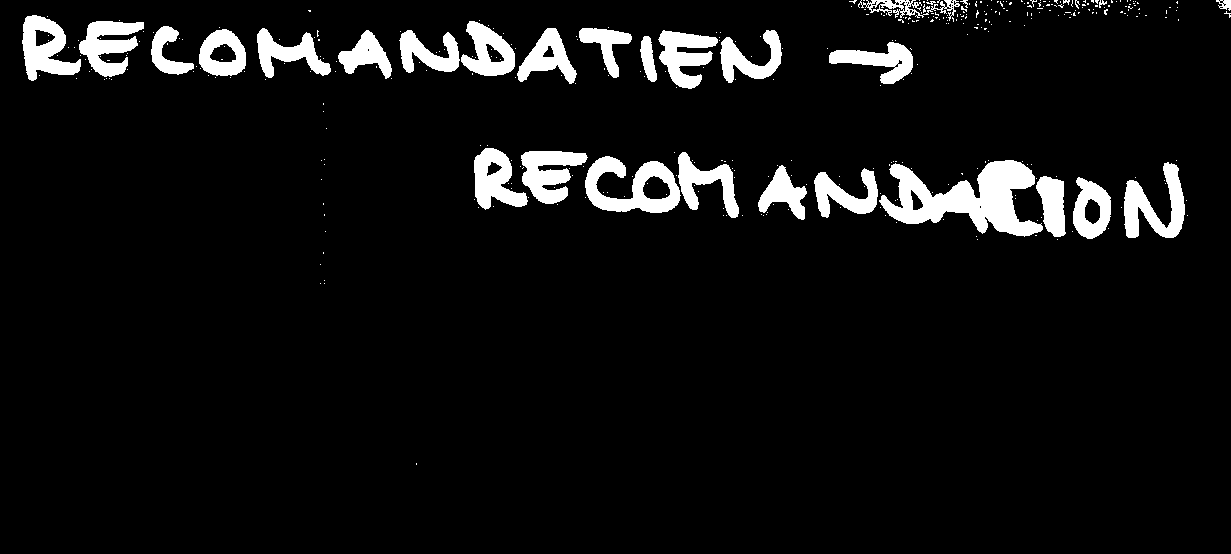 RECOMANDATIEN →
RECOMANDACION